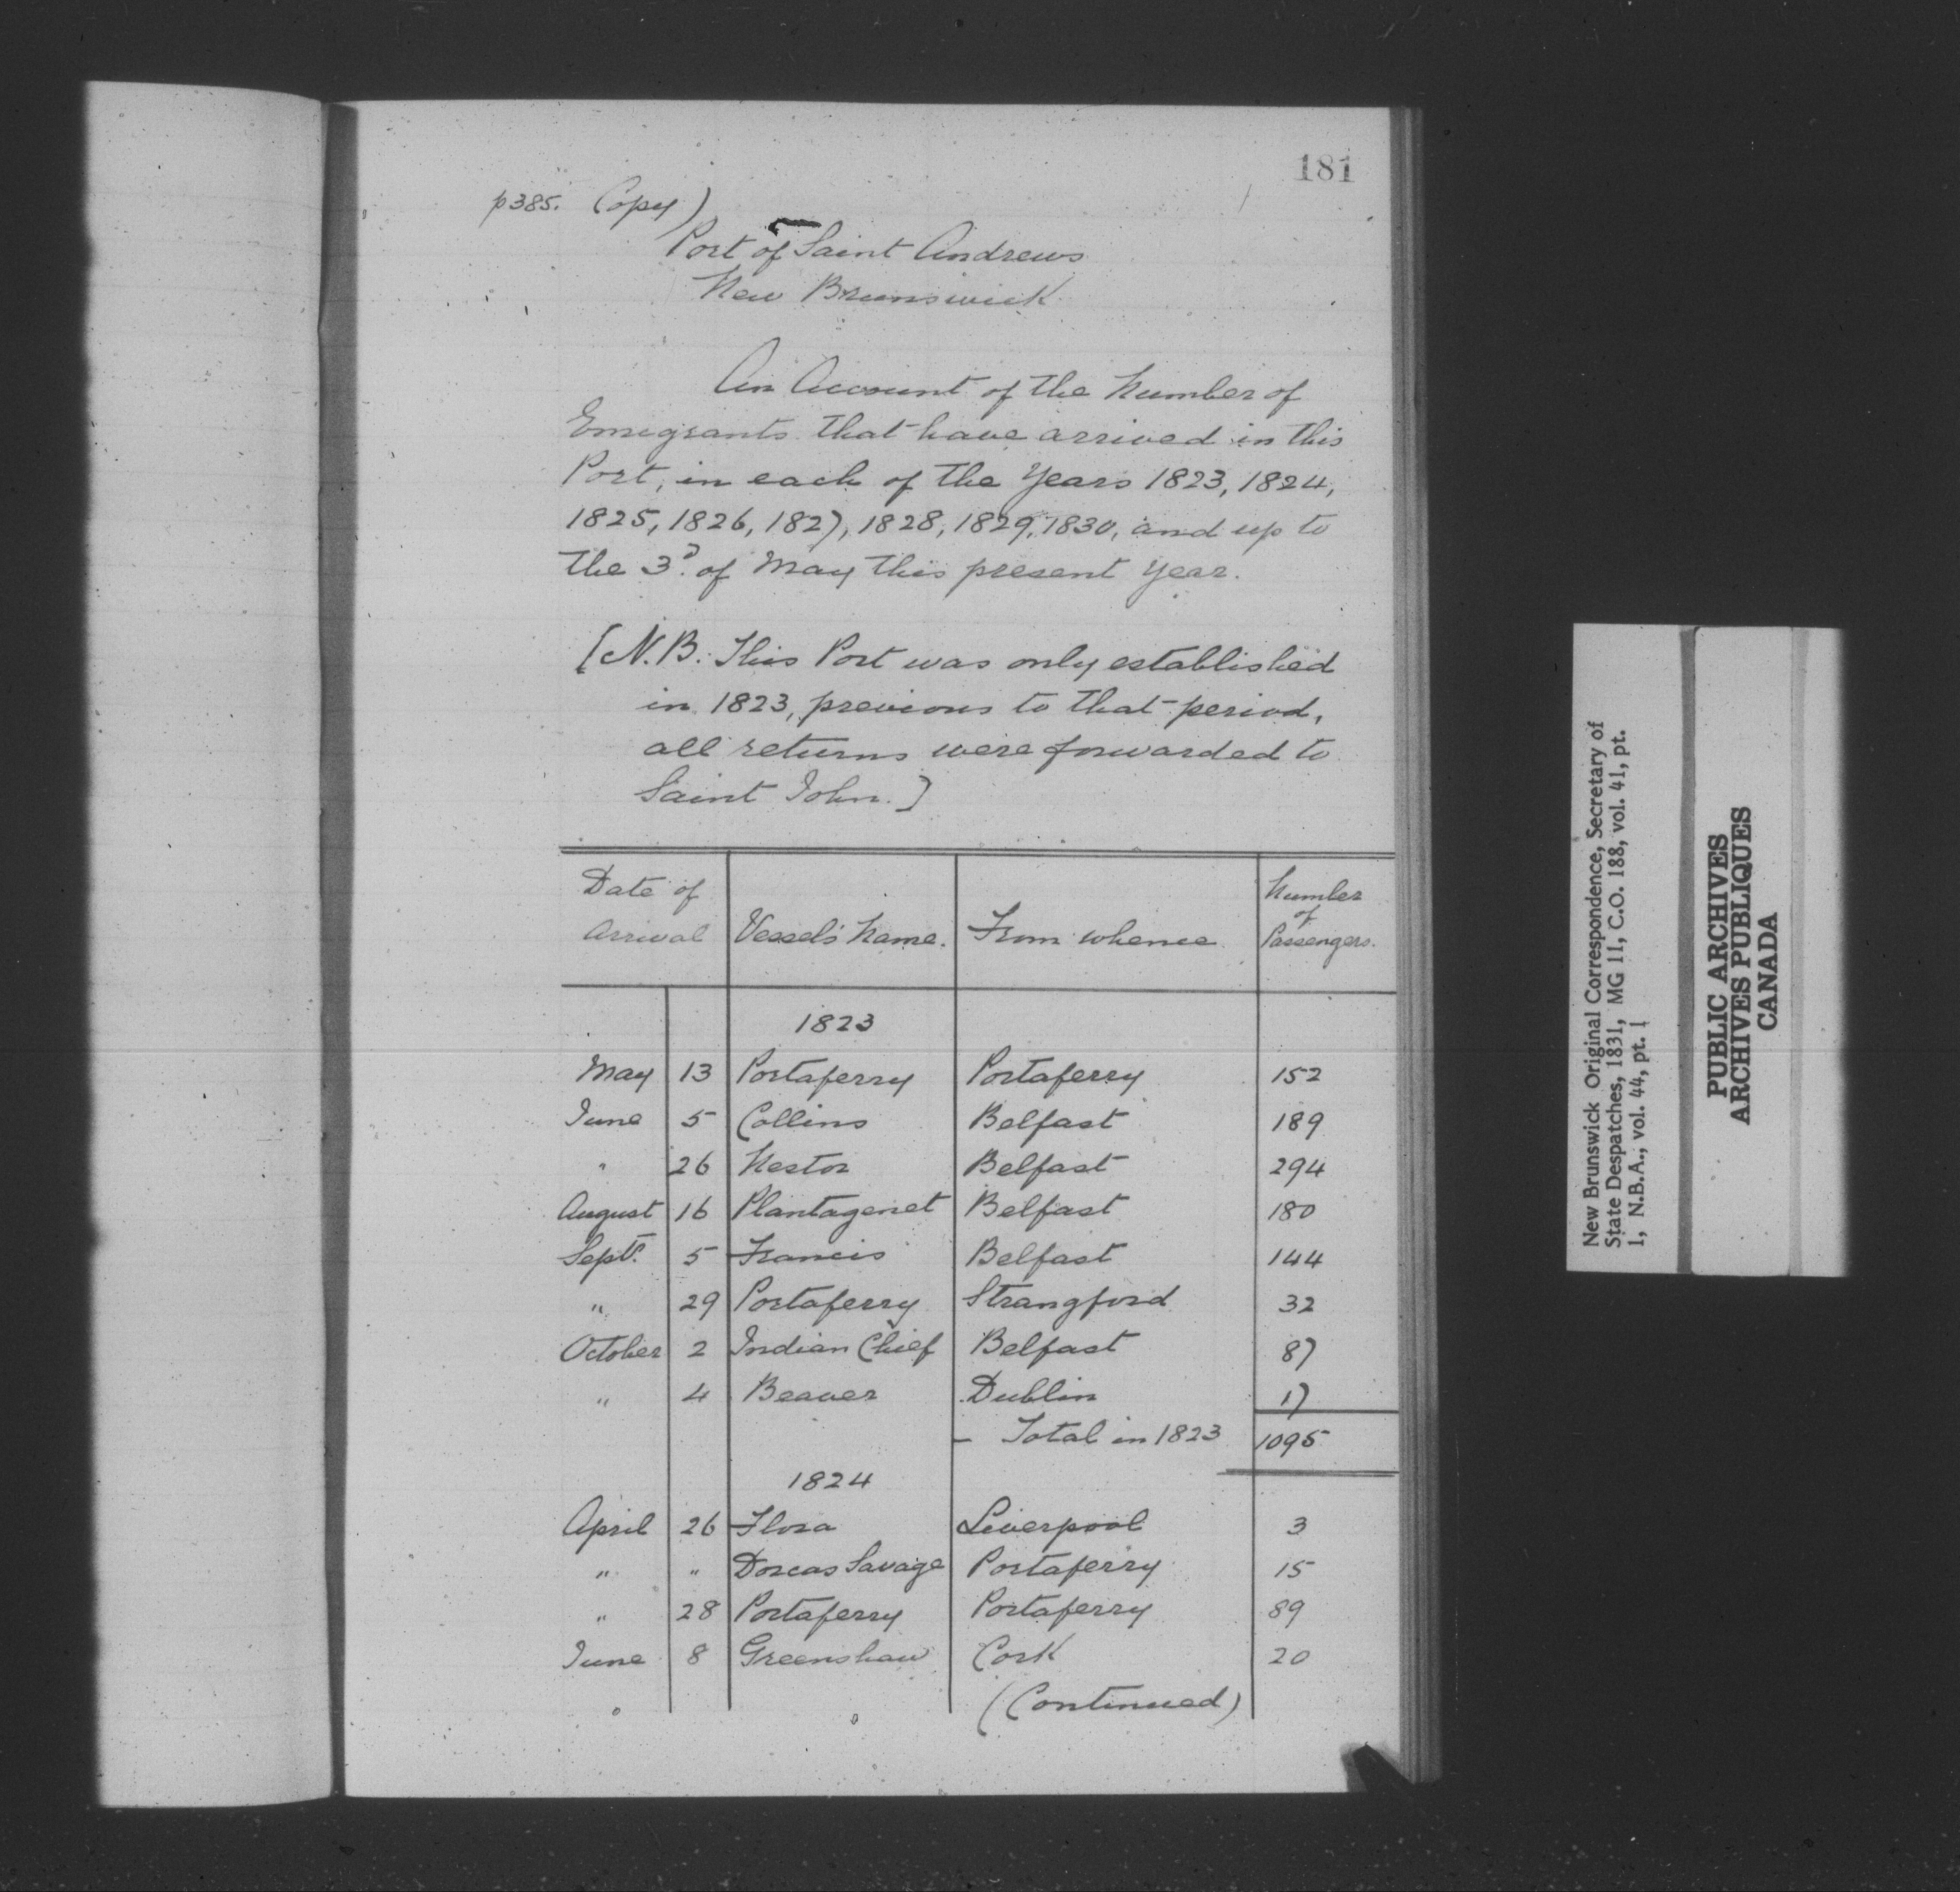 181
p385. Copy)
Port of Saint Andrews
New Brunswick
An Account of the Number of
Emigrants that have arrived in this
Port, in each of the Years 1823, 1824,
1825, 1826, 1827, 1828, 1829, 1830, and up to
the 3d. of May this present year.
[N.B. This Port was only established
in 1823, previous to that period,
all returns were forwarded to
Saint John.]
Date of Arrival | Vessel's Name. | From whence | Number of Passengers.
1823
May 13 Portaferry Portaferry 152
June 5 Collins Belfast 189
" 26 Nestor Belfast 294
August 16 Plantagenet Belfast 180
Septr. 5 Francis Belfast 144
" 29 Portaferry Strangford 32
October 2 Indian Chief Belfast 87
" 4 Beaver Dublin 17
– Total in 1823 1095
1824
April 26 Flora Liverpool 3
" " Dorcas Savage Portaferry 15
" 28 Portaferry Portaferry 89
June 8 Greenshaw Cork 20
(Continued)
New Brunswick Original Correspondence, Secretary of
State Despatches, 1831, MG 11, C.O. 188, vol. 41, pt.
1, N.B.A., vol. 44, pt. 1
PUBLIC ARCHIVES
ARCHIVES PUBLIQUES
CANADA